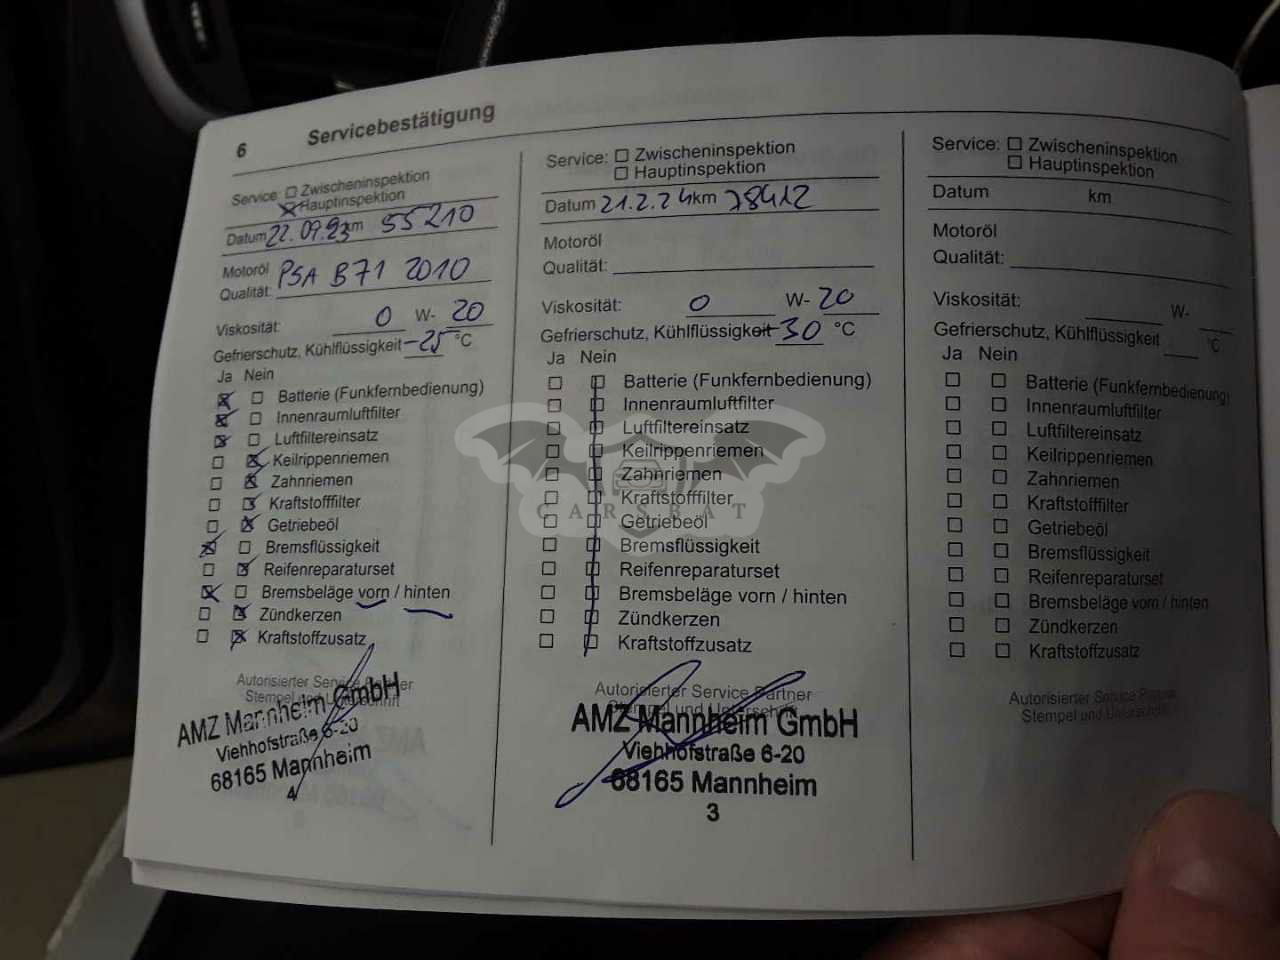 6 Servicebestätigung
Service: Zwischeninspektion
Hauptinspektion
Datum 22.09.23 km 55210
Motoröl
Qualität: PSA B71 2010
Viskosität: 0 W- 20
Gefrierschutz, Kühlflüssigkeit -25 °C
Ja Nein
Batterie (Funkfernbedienung)
Innenraumluftfilter
Luftfiltereinsatz
Keilrippenriemen
Zahnriemen
Kraftstofffilter
Getriebeöl
Bremsflüssigkeit
Reifenreparaturset
Bremsbeläge vorn / hinten
Zündkerzen
Kraftstoffzusatz
Autorisierter Service Partner
Stempel und Unterschrift
AMZ Mannheim GmbH
Viehhofstraße 6-20
68165 Mannheim
4
Service: Zwischeninspektion
Hauptinspektion
Datum 21.2.24 km 78412
Motoröl
Qualität:
Viskosität: 0 W- 20
Gefrierschutz, Kühlflüssigkeit -30 °C
Ja Nein
Batterie (Funkfernbedienung)
Innenraumluftfilter
Luftfiltereinsatz
Keilrippenriemen
Zahnriemen
Kraftstofffilter
Getriebeöl
Bremsflüssigkeit
Reifenreparaturset
Bremsbeläge vorn / hinten
Zündkerzen
Kraftstoffzusatz
Autorisierter Service Partner
Stempel und Unterschrift
AMZ Mannheim GmbH
Viehhofstraße 6-20
68165 Mannheim
3
Service: Zwischeninspektion
Hauptinspektion
Datum km
Motoröl
Qualität:
Viskosität: W-
Gefrierschutz, Kühlflüssigkeit °C
Ja Nein
Batterie (Funkfernbedienung)
Innenraumluftfilter
Luftfiltereinsatz
Keilrippenriemen
Zahnriemen
Kraftstofffilter
Getriebeöl
Bremsflüssigkeit
Reifenreparaturset
Bremsbeläge vorn / hinten
Zündkerzen
Kraftstoffzusatz
Autorisierter Service Partner
Stempel und Unterschrift
CARSBAT